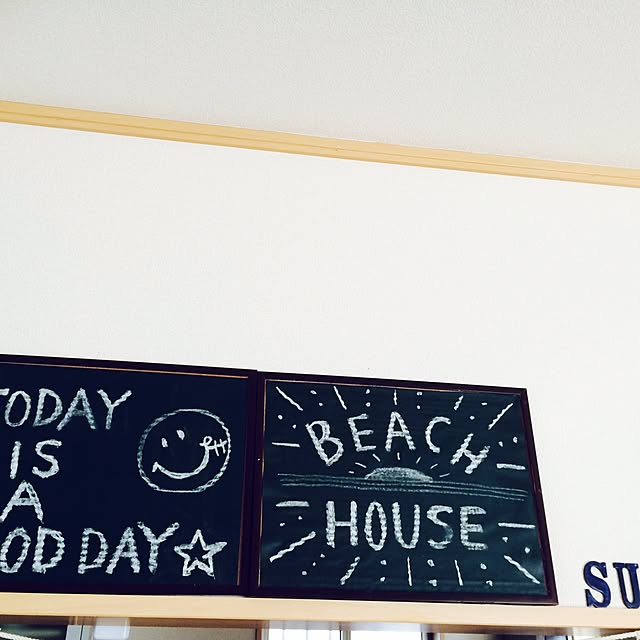 TODAY
IS
A
OOD DAY
BEACH
HOUSE
SU